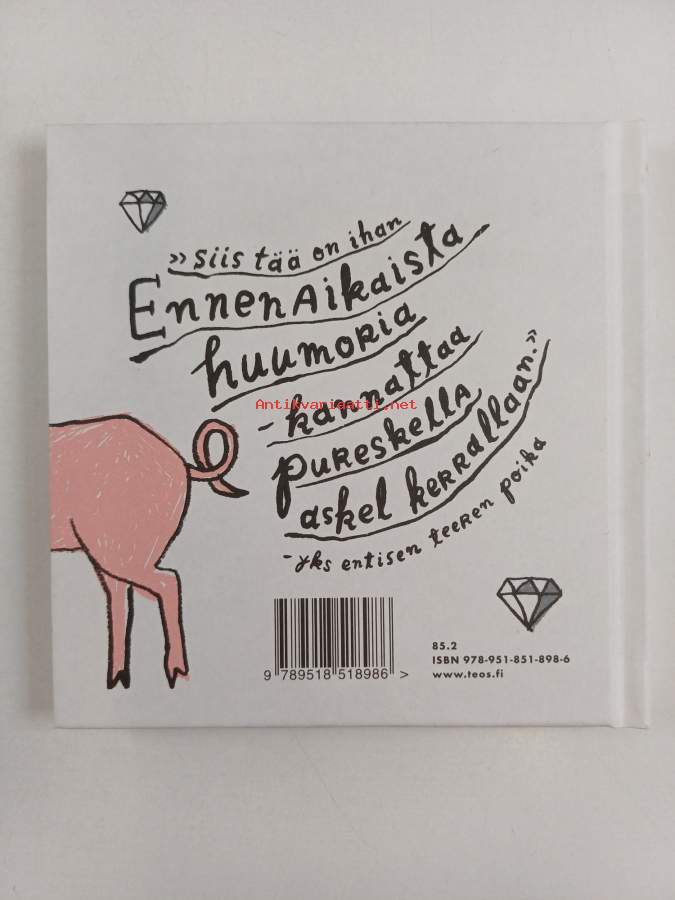 »Siis tää on ihan
Ennenaikaista
huumoria
-kannattaa
pureskella
askel kerrallaan.»
-yks entisen teeren poika
Antikvariaatti.net
85.2
ISBN 978-951-851-898-6
www.teos.fi
9 789518 518986 >